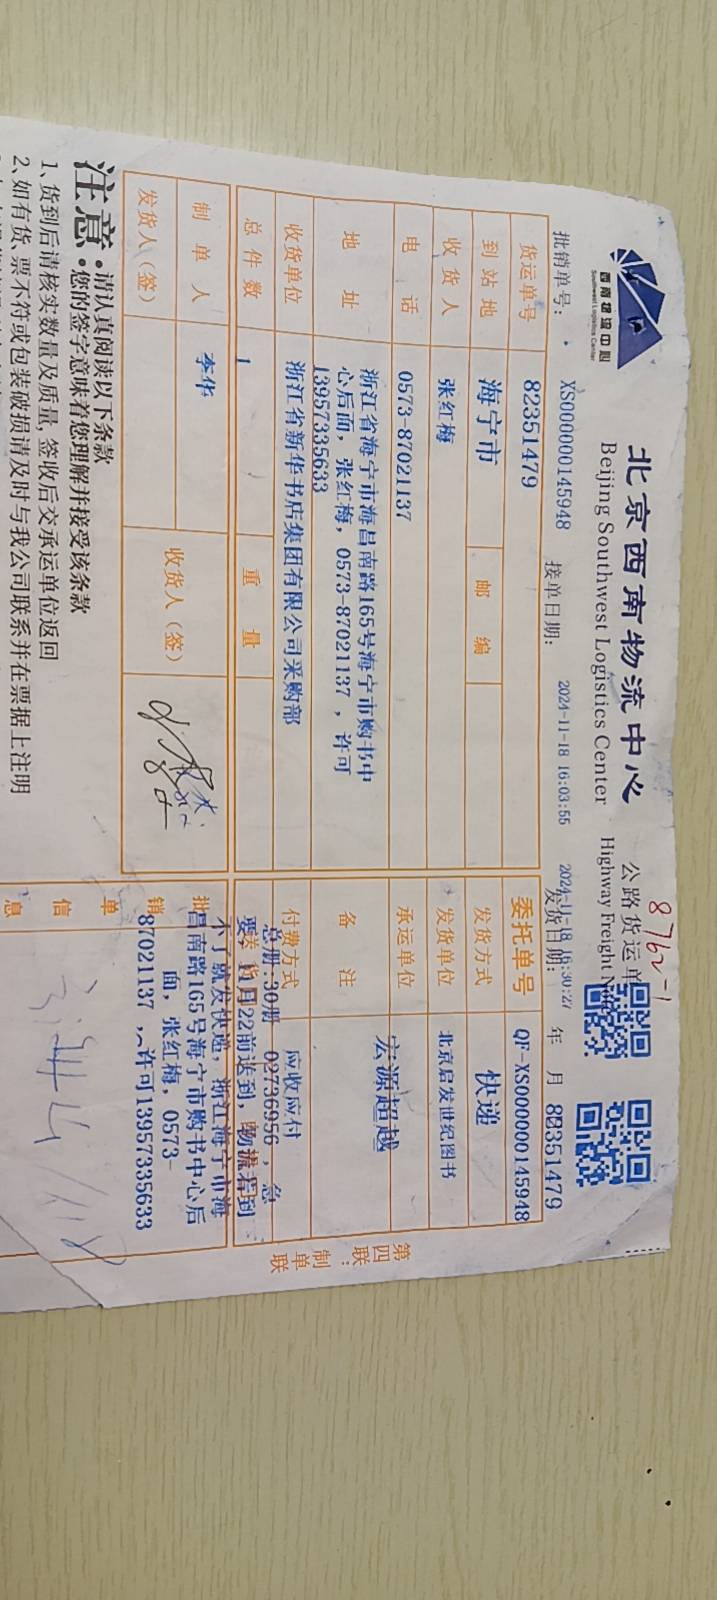 西南物流中心
Southwest Logistics Center
北京西南物流中心
Beijing Southwest Logistics Center
公路货运单
Highway Freight
8762-1
批销单号： XS000000145948 接单日期： 2024-11-18 16:03:55 2024-11-18 16:30:27
发货日期： 年 月 82351479
货运单号 82351479 委托单号 QF-XS000000145948
到站地 海宁市 邮编 发货方式 快递
收货人 张红梅 发货单位 北京启发世纪图书
电话 0573-87021137 承运单位 宏源超越
地址 浙江省海宁市海昌南路165号海宁市购书中
心后面，张红梅，0573-87021137 ，许可
13957335633
备注
收货单位 浙江省新华书店集团有限公司采购部 付费方式 应收应付
总件数 1 重量
总册:30册 02736956 ，急
要，11月22前送到，物流若到
不了就发快递，浙江海宁市海
昌南路165号海宁市购书中心后
面，张红梅，0573-
87021137 ，许可13957335633
制单人 李华 收货人（签）
发货人（签）
批销单信息
第四联：制单联
注意
•请认真阅读以下条款
•您的签字意味着您理解并接受该条款
1、货到后请核实数量及质量，签收后交承运单位返回
2、如有货、票不符或包装破损请及时与我公司联系并在票据上注明